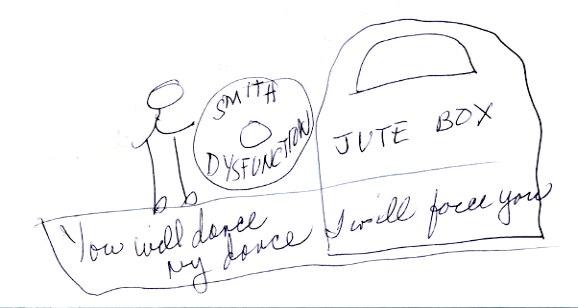 SMITH
DYSFUNCTION
JUTE BOX
You will dance
my dance
I will force you